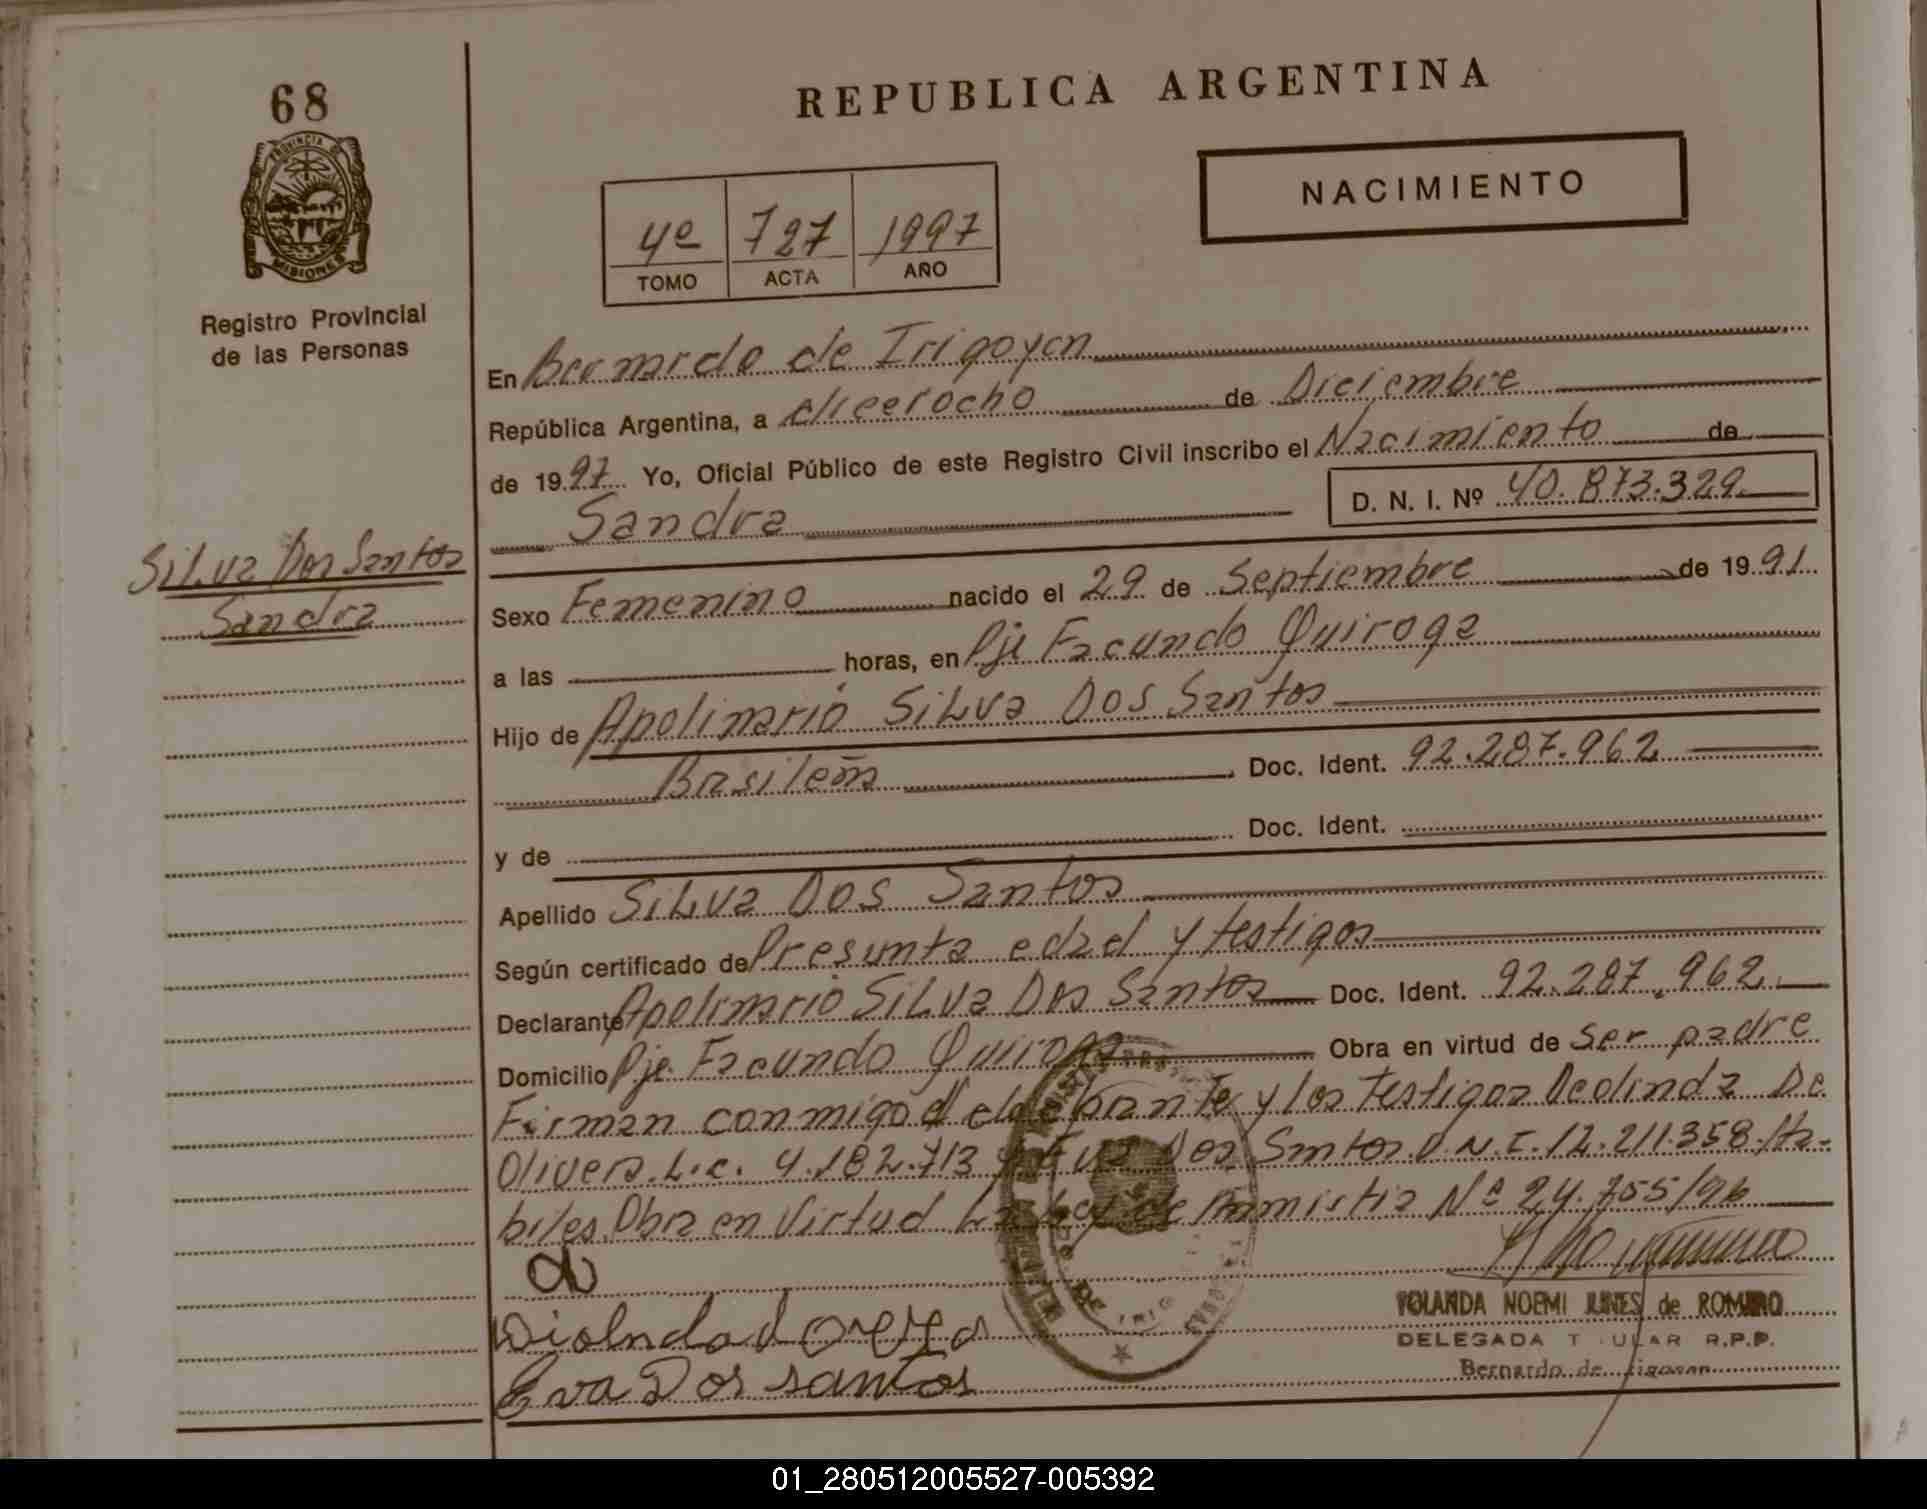 68
PROVINCIA DE
MISIONES
Registro Provincial
de las Personas
Silva Dos Santos
Sandra
REPUBLICA ARGENTINA
NACIMIENTO
4º 727 1997
TOMO ACTA AÑO
En Bernardo de Irigoyen
República Argentina, a dieciocho de Diciembre
de 1997 Yo, Oficial Público de este Registro Civil inscribo el Nacimiento de
Sandra D. N. I. Nº 40.873.329
Sexo Femenino nacido el 29 de Septiembre de 1991
a las horas, en Pje Facundo Quiroga
Hijo de Apolinario Silva Dos Santos
Brasileña Doc. Ident. 92.287.962
y de Doc. Ident.
Apellido Silva Dos Santos
Según certificado de Presunta edad y testigos
Declarante Apolinario Silva Dos Santos Doc. Ident. 92.287.962
Domicilio Pje. Facundo Quiroga Obra en virtud de Ser padre
Firman conmigo el declarante y los testigos Deolinda De
Olivera L.c. 4.182.713 y Eva Dos Santos D.N.I. 12.211.358. Há-
biles. Obra en Virtud La Ley de Amnistia Nº 24.755/96
YOLANDA NOEMI JUNES de ROMERO
DELEGADA TITULAR R.P.P.
Bernardo de Irigoyen
Eva Dos santos
01_280512005527-005392